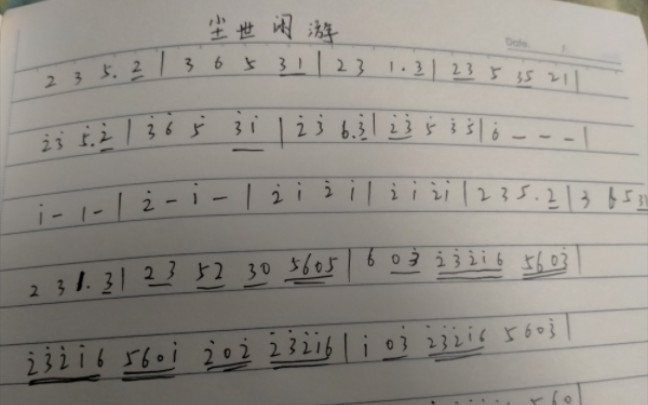 尘世闲游
Date.
2 3 5. 2 | 3 6 5 3 1 | 2 3 1. 3 | 2 3 5 3 5 2 1 |
2̇ 3̇ 5̇. 2̇ | 3̇ 6̇ 5̇ 3̇ i | 2̇ 3̇ 6. 3̇ | 2̇ 3̇ 5̇ 3̇ 5̇ | 6̇ – – – |
i – 1 – | 2̇ – i – | 2̇ i 2̇ i | 2̇ i 2̇ i | 2 3 5. 2 | 3 6 5 3
2 3 1. 3 | 2 3 5 2 3 0 5 6 0 5 | 6 0 3̇ 2̇ 3̇ 2̇ i 6 5 6 0 3̇ |
2̇ 3̇ 2̇ i 6 5 6 0 i 2̇ 0 2̇ 2̇ 3̇ 2̇ i 6 | i 0 3̇ 2̇ 3̇ 2̇ i 6 5 6 0 3̇ |